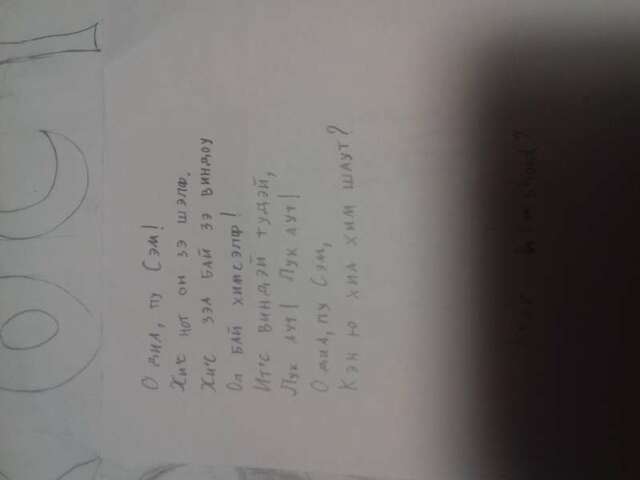 О диа, пу Сэм!
Хи'с нот он зэ шэлф.
Хи'с зэа бай зэ виндоу
Ол бай химсэлф!
Ит'с виндэй тудэй,
Лук аут! Лук аут!
О диа, пу Сэм,
Кэн ю хиа хим шаут?
hear him shout?